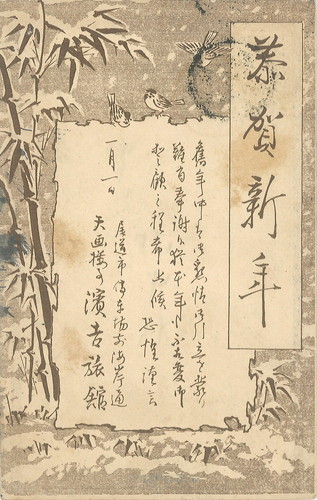 恭賀新年
舊年中ハ御懇情御引立を蒙り
難有奉謝候本年も不相変御
愛顧之程希上候 恐惶謹言
一月一日
尾道市停車場前海岸通
濱吉旅館